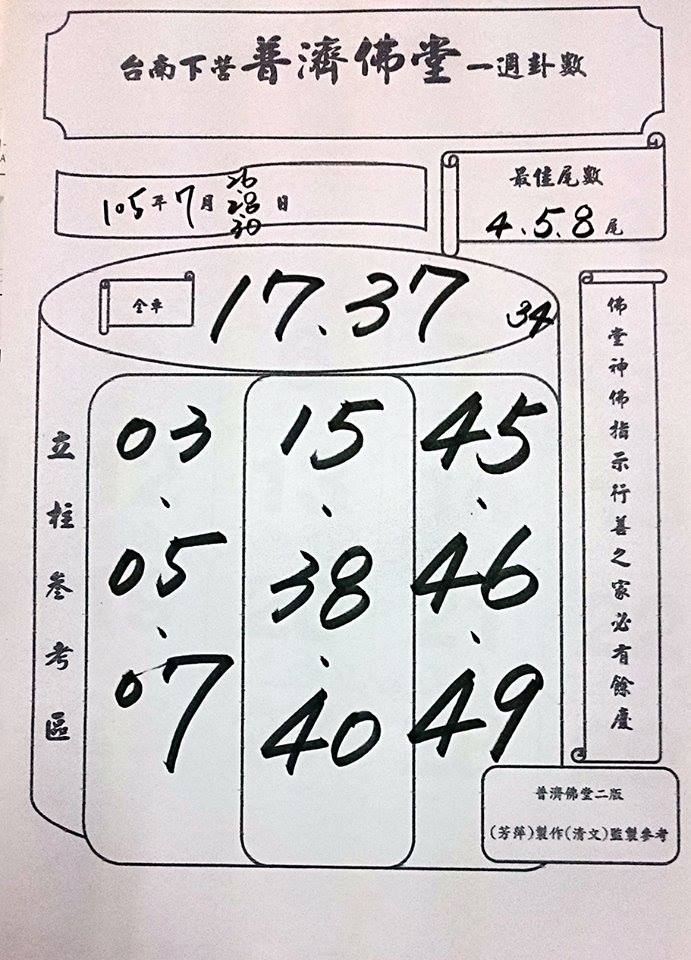 台南下苦普濟佛堂一週卦數
105年7月26.28.30日
最佳尾數
4.5.8尾
全車
17.37
34
立柱叄考區
03、05、07
15、38、40
45、46、49
佛堂神佛指示行善之家必有餘慶
普濟佛堂二版
(芳萍)製作(清文)監製參考